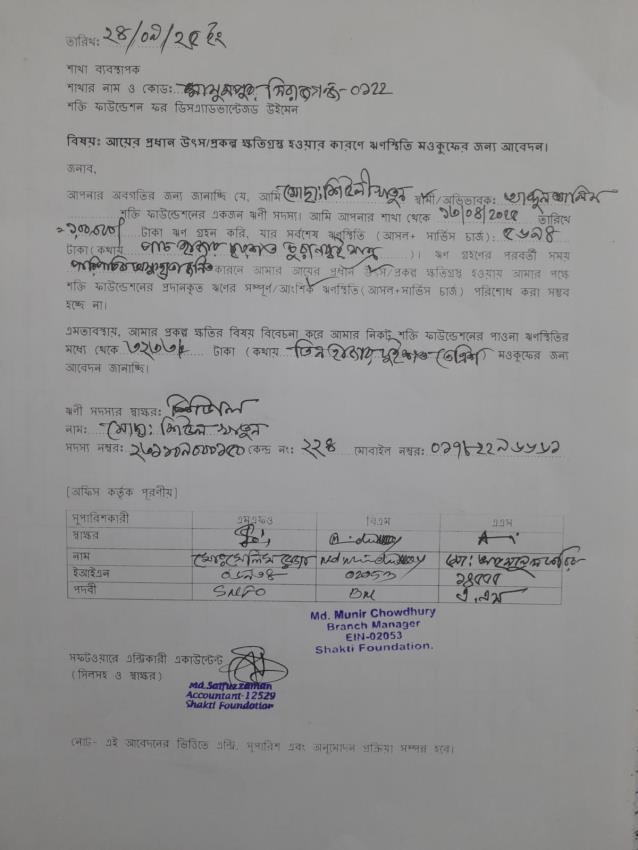 তারিখ: ২৪/০৯/২৫ ইং
শাখা ব্যবস্থাপক
শাখার নাম ও কোড: সিরাজগঞ্জ-০১২২
শক্তি ফাউন্ডেশন ফর ডিসএ্যাডভান্টেজড উইমেন
বিষয়: আয়ের প্রধান উৎস/প্রকল্প ক্ষতিগ্রস্থ হওয়ার কারণে ঋণস্থিতি মওকুফের জন্য আবেদন।
জনাব,
আপনার অবগতির জন্য জানাচ্ছি যে, আমি মোছা: শিউলী খাতুন স্বামী/অভিভাবক:
শক্তি ফাউন্ডেশনের একজন ঋণী সদস্য। আমি আপনার শাখা থেকে তারিখে
টাকা ঋণ গ্রহন করি, যার সর্বশেষ ঋণস্থিতি (আসল+ সার্ভিস চার্জ): ৫৬৯৪
টাকা (কথায় পাঁচ হাজার ছয়শত চুরানব্বই )। ঋণ গ্রহণের পরবর্তী সময়
কারনে আমার আয়ের প্রধান উৎস/প্রকল্প ক্ষতিগ্রস্থ হওয়ায় আমার পক্ষে
শক্তি ফাউন্ডেশনের প্রদানকৃত ঋণের সম্পূর্ণ/আংশিক ঋণস্থিতি (আসল+সার্ভিস চার্জ) পরিশোধ করা সম্ভব
হচ্ছে না।
এমতাবস্থায়, আমার প্রকল্প ক্ষতির বিষয় বিবেচনা করে আমার নিকট শক্তি ফাউন্ডেশনের পাওনা ঋণস্থিতির
মধ্যে থেকে টাকা (কথায় তিন হাজার দুইশত তেত্রিশ) মওকুফের জন্য
আবেদন জানাচ্ছি।
ঋণী সদস্যর স্বাক্ষর: শিউলি
নাম: মোছা: শিউলি খাতুন
সদস্য নম্বর: কেন্দ্র নং: ২২৪ মোবাইল নম্বর:
[অফিস কর্তৃক পূরণীয়]
সুপারিশকারী এমএফও বিএম এএম
স্বাক্ষর
নাম Md Munir Chowdhury
ইআইএন 02053
পদবী SMFO BM এ.এম
Md. Munir Chowdhury
Branch Manager
EIN-02053
Shakti Foundation.
সফটওয়ারে এন্ট্রিকারী একাউন্টেন্ট
(সিলসহ ও স্বাক্ষর)
Md. Saifuzzaman
Accountant-12529
Shakti Foundation
নোট- এই আবেদনের ভিত্তিতে এন্ট্রি, সুপারিশ এবং অনুমোদন প্রক্রিয়া সম্পন্ন হবে।